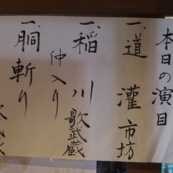 本日の演目
一、道灌 市坊
一、稲川 歌武蔵
仲入り
一、胴斬り